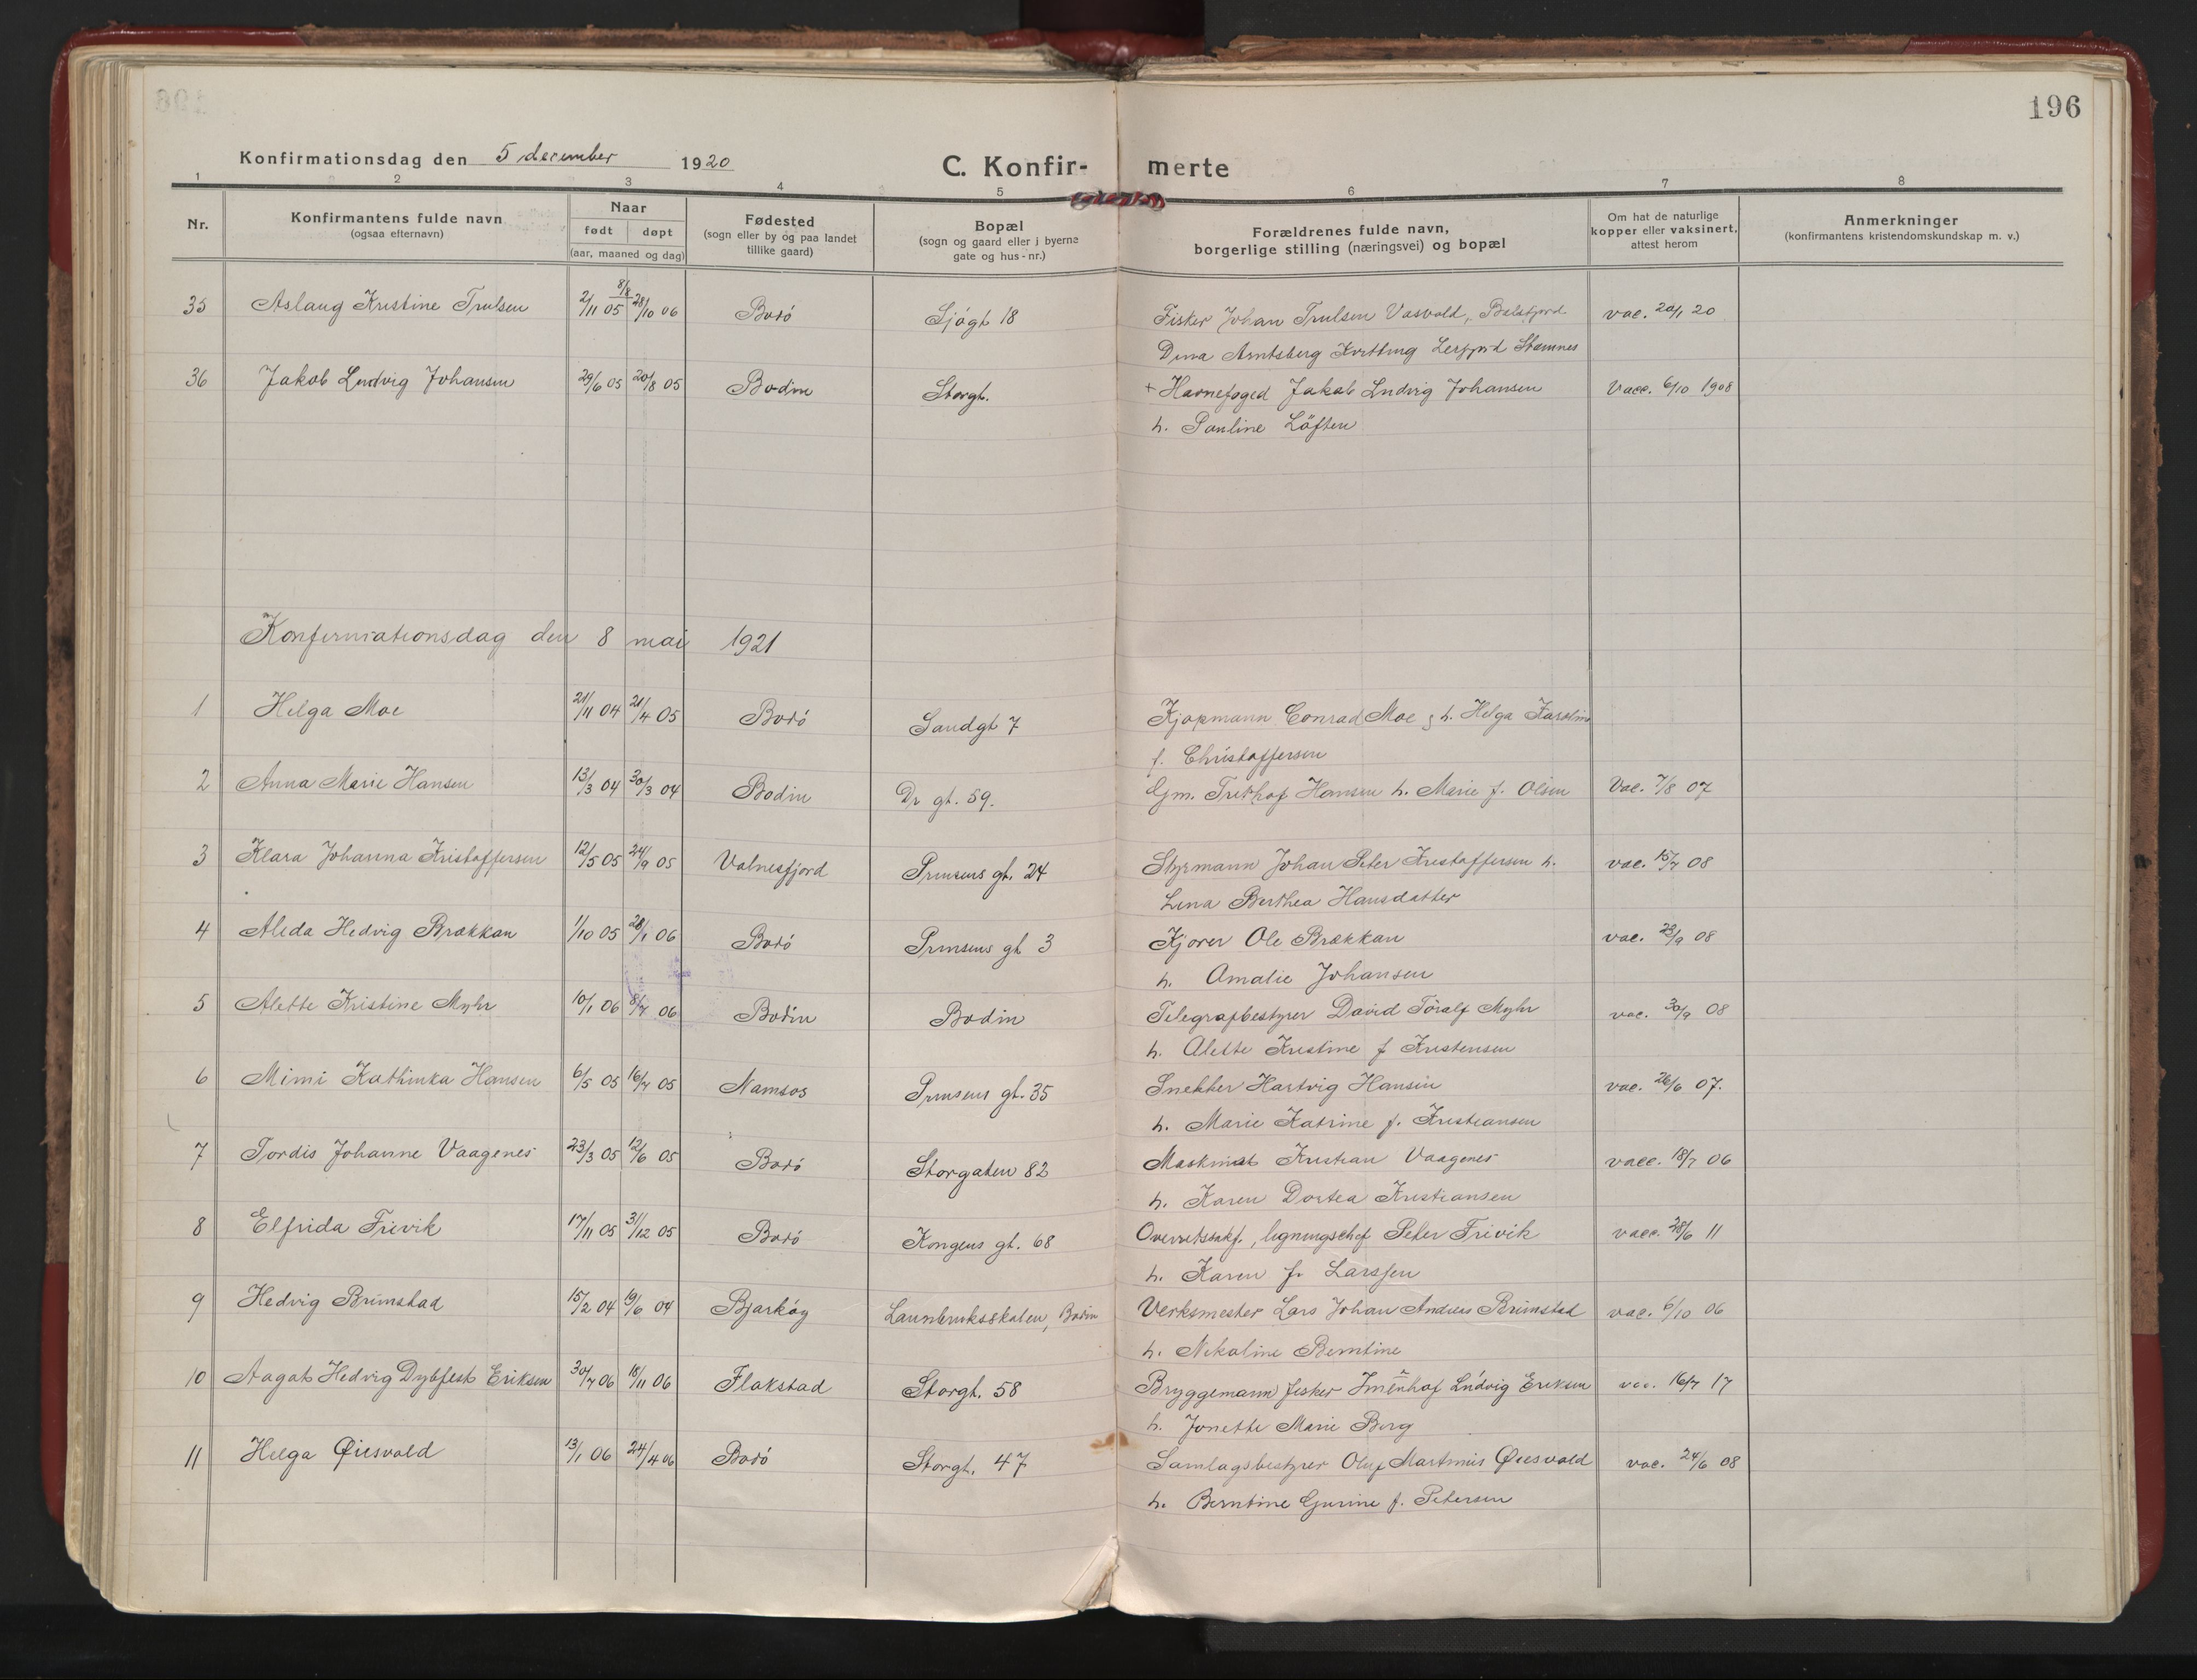 196
Konfirmationsdag den 5 december 1920
C. Konfir- merte
1 2 3 4 5 6 7 8
Nr.
Konfirmantens fulde navn
(ogsaa efternavn)
Naar
født døpt
(aar, maaned og dag)
Fødested
(sogn eller by og paa landet
tillike gaard)
Bopæl
(sogn og gaard eller i byerne
gate og hus-nr.)
Forældrenes fulde navn,
borgerlige stilling (næringsvei) og bopæl
Om hat de naturlige
kopper eller vaksinert,
attest herom
Anmerkninger
(konfirmantens kristendomskundskap m. v.)
35 Aslaug Kristine Trulsen 2/11 05 8/8 28/10 06 Bodó Sjógt 18 Fisker Johan Trulsen Vasvold, Balsfjord vac. 20/1 20
Dina Arntsberg Kvitting Leirfjord Stamnes
36 Jakob Ludvig Johansen 29/6 05 20/8 05 Bodin Storgt. + Havnefoged Jakob Ludvig Johansen Vacc. 6/10 1908
h. Pauline Löften
Konfirmationsdag den 8 mai 1921
1 Helga Moe 21/11 04 21/4 05 Bodó Sandgt 7 Kjøpmann Conrad Moe og h. Helga Karoline
f. Christoffersen
2 Anna Marie Hansen 13/3 04 30/3 04 Bodin Dr gt. 59. Gm. Frithof Hansen h. Marie f. Olsen Vac. 7/8 07
3 Klara Johanna Kristoffersen 12/5 05 24/9 05 Valnesfjord Prinsens gt. 24 Styrmann Johan Peter Kristoffersen h. vac. 15/7 08
Lina Berthea Hansdatter
4 Alida Hedvig Brækkan 1/10 05 28/1 06 Bodó Prinsens gt 3 Kjører Ole Brækkan vac. 28/9 08
h. Amalie Johansen
5 Alette Kristine Myhr 10/1 06 8/7 06 Bodin Bodin Telegrafbestyrer David Toralf Myhr vac. 30/9 08
h. Alette Kristine f Kristensen
6 Mimi Kathinka Hansen 6/5 05 16/7 05 Namsos Prinsens gt. 35 Snekker Hartvig Hansen vac. 26/6 07.
h. Marie Katrine f. Kristiansen
7 Tordis Johanne Vaagenes 23/3 05 12/6 05 Bodó Storgaten 82 Maskinist Kristian Vaagenes vacc. 18/7 06
h. Karen Dortea Kristiansen
8 Elfrida Trivik 17/11 05 31/12 05 Bodó Kongens gt. 68 Overretssakf., ligningschef Peter Trivik vacc. 28/6 11
h. Karen f. Larssen
9 Hedvig Brimstad 15/2 04 19/6 04 Bjarkóy Landbruksskolen, Bodin Verksmester Lars Johan Andreas Brimstad vac. 6/10 06
h. Nikoline Berntine
10 Aagot Hedvig Dybfest Eriksen 30/7 06 18/11 06 Flakstad Storgt. 58 Bryggemann fisker Ludvig Eriksen vac. 16/7 17
h. Jonette Marie Berg
11 Helga Øiesvold 13/1 06 24/4 06 Bodó Storgt. 47 Samlagsbestyrer Oluf Martinius Øiesvold vac. 24/6 08
h. Berntine Gurine f. Petersen